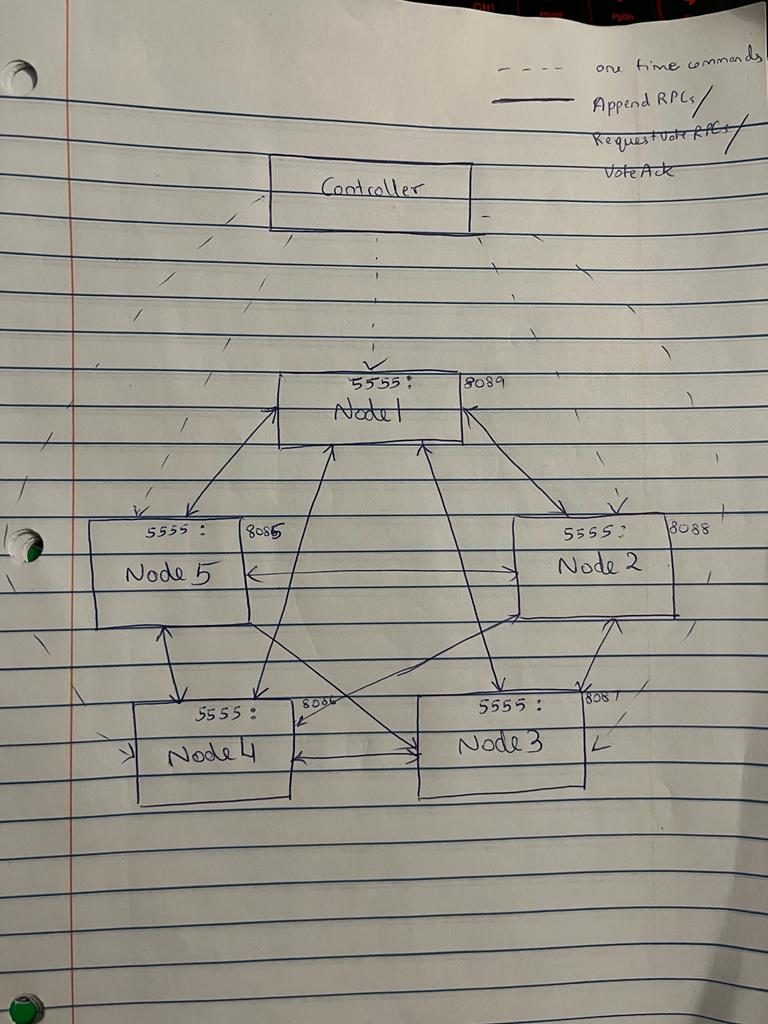 one time commands
Append RPCs/
RequestVote RPCs/
VoteAck
Controller
5555: 8089
Node 1
5555: 8085
Node 5
5555: 8088
Node 2
5555: 8086
Node 4
5555: 8087
Node 3
PgDn